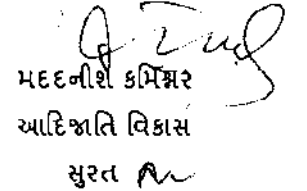 મદદનીશ કમિશ્નર
આદિજાતિ વિકાસ
સુરત